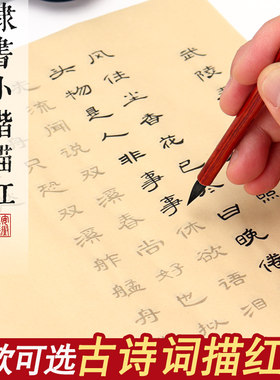 隶书小楷描红
武陵
风住尘香花已
日晚倦
头物是人非事事休欲语泪
流闻说双溪春尚好也拟
只恐双溪舴艋舟
款可选古诗词描红